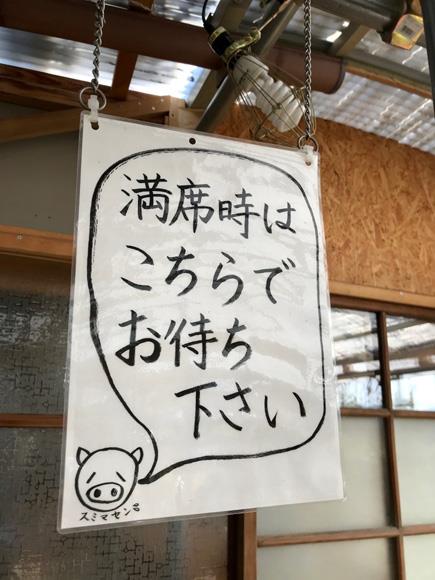 満席時は
こちらで
お待ち
下さい
スミマセン